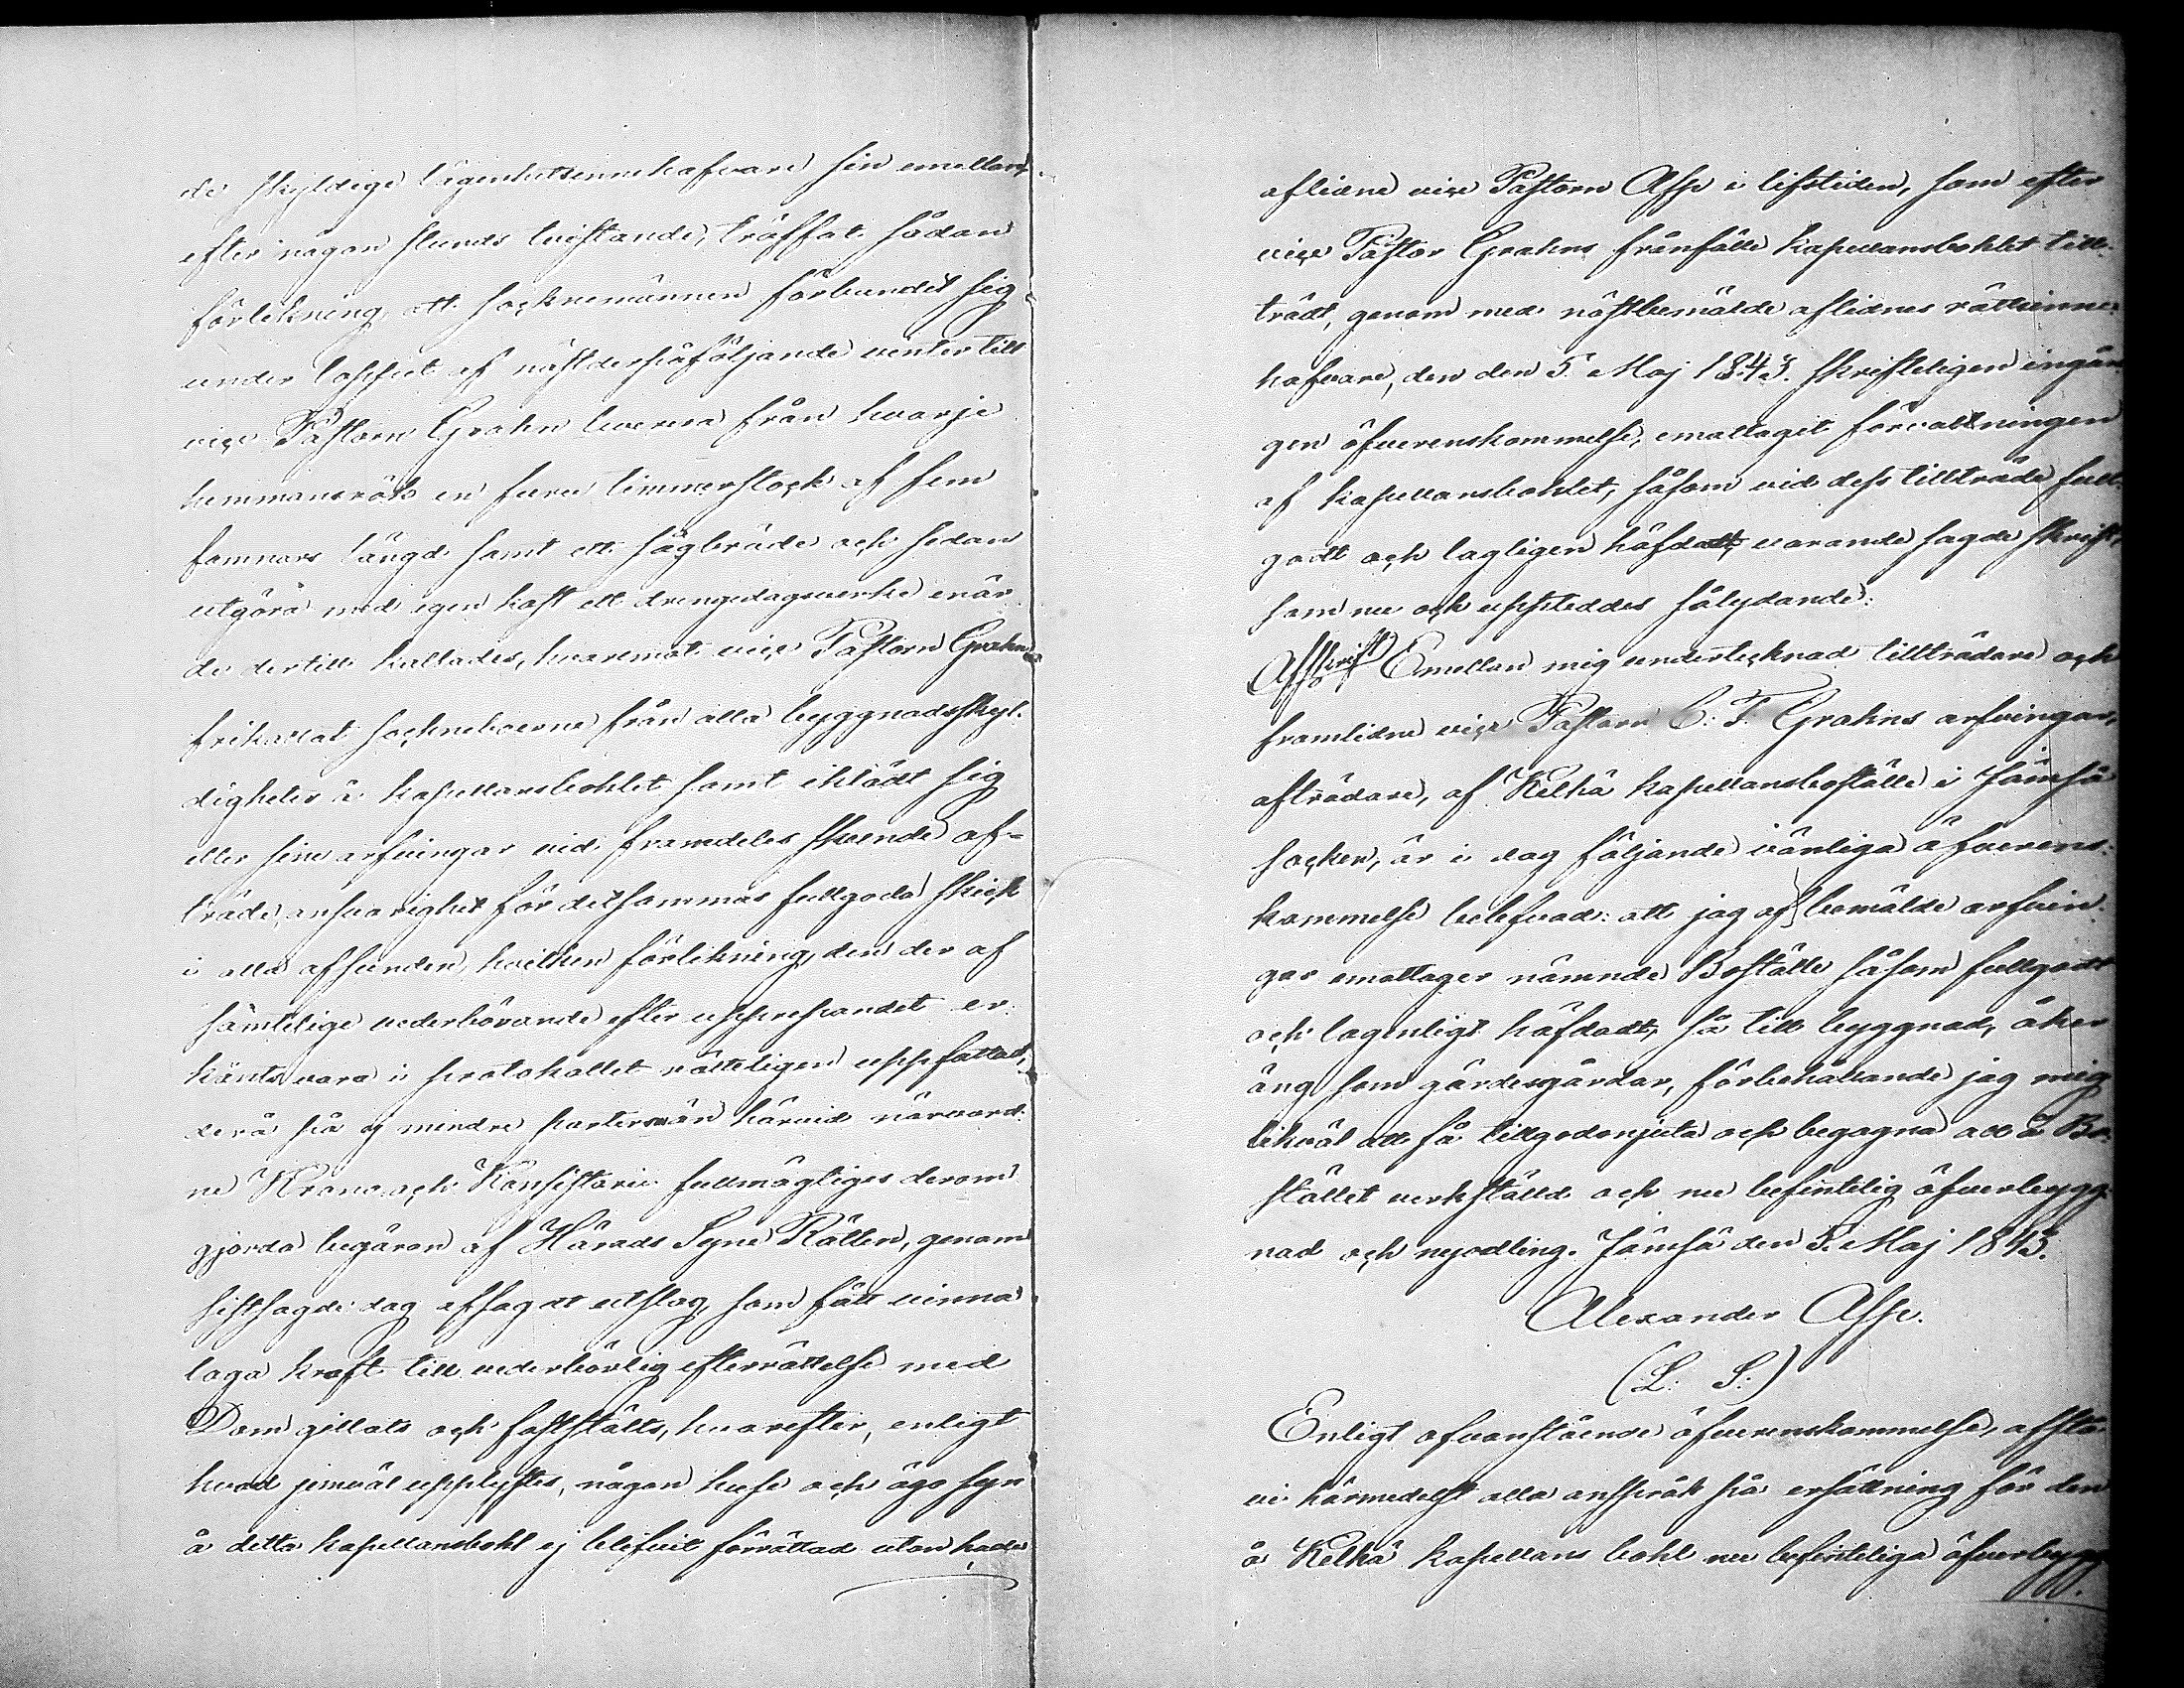 de skyldige lägenhetsinnehafvare sin emellan,
efter någon stunds bestånde, träffat sådan
förlikning, att socknemännen förbundit sig
under loppet af näst derpåföljande venter till
vice Pastorn Grahn leverera från hvarje
hemmansrök en furu timmerstock af fem
famnars längd samt ett sågbräde och sedan
utgöra med egen kost ett drengedagsverke enär
de dertill kallades, hvaremot vice Pastorn Grahn
frikallat sockneboerne från alla byggnadsskyl-
digheter å kapellansbohlet samt iklädt sig
eller sine arfvingar vid framdeles skeende af-
träde, ansvarighet för detsammas fullgoda skick
i alla afseenden, hvilken förlikning, den der af
samtelige vederbörande efter uppropandet er-
känts vara i protokollet rätteligen uppfattad,
derå på ej mindre partersmän härvid närvaran-
ne Krono och Konsistorii fullmägtiges derom
gjorda begäran af Härads Syne Rätten, genom
sistsagde dag afsagdt utslag, som fått vinna
laga kraft till vederbörlig efterrättelse med
Dom gillats och fastställts, hvarefter, enligt
hvad jemväl upplystes, någon huse och ägo syn
å detta kapellansbohl ej blifvit förrättad utan hade
aflidne vice Pastorn Asp i lifstiden, som efter
vice Pastor Grahns frånfälle kapellansbohlet till-
trädt, genom med nästbemälde aflidnes rättsinne-
hafvare, den den 5. Maj 1843. skrifteligen ingån-
gen öfverenskommelse, emottagit förvaltningen
af kapellansbohlet, såsom vid dess tillträde full-
godt och lagligen häfdadt, varande sagde skrift,
som nu och uppteddes sålydande:
Afskrift Emellan mig undertecknad tillträdare och
framlidne vice Pastorn C: F: Grahns arfvingar,
afträdare, af Kelhä kapellansboställe i Jämsä
socken, är i dag följande vänliga öfverens-
kommelse belefvad: att jag af bemälde arfvin-
gar emottager nämnde Boställe såsom fullgodt
och lagenligt häfdadt, så till byggnad, åker
äng som gärdesgårdar, förbehållande jag mig
likväl att få tillgodonjuta och begagna all å Bo-
stället verkställd och nu befintelig öfverbygg-
nad och nyodling. Jämsä den 5. Maj 1843.
Alexander Asp.
(L. S.)
Enligt ofvanstående öfverenskommelse, afstå
vi härmedelst alla anspråk på ersättning för den
å Kelhä kapellans bohl nu befinteliga öfverbygg-